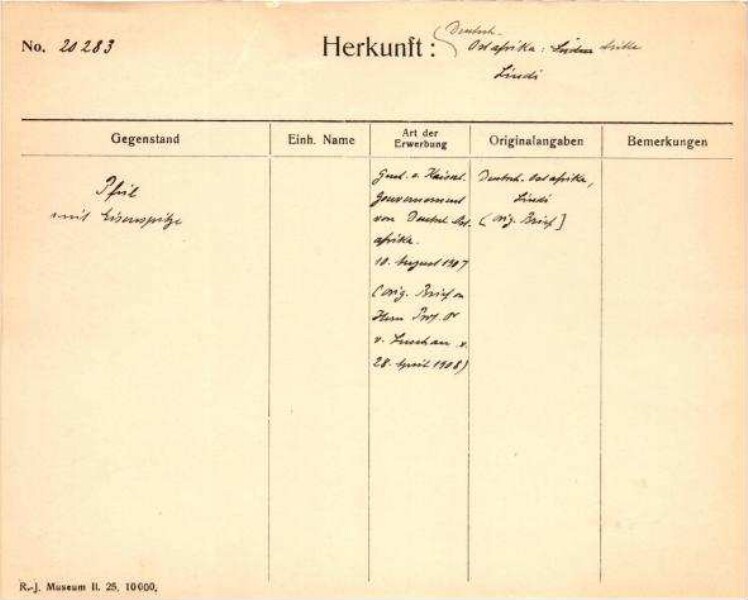 No. 20283
Herkunft:
Deutsch-
Ostafrika: Afrika
Lindi
Gegenstand
Einh. Name
Art der
Erwerbung
Originalangaben
Bemerkungen
Pfeil
mit Eisenspitze
v. Kaiserl.
Gouvernement
von Deutsch Ost-
afrika.
10. August 1907
(orig. Brief an
Herrn Prof. Dr
v. Luschan v.
28. April 1908)
Deutsch. Ostafrika,
Lindi
(orig. Brief]
R.-J. Museum II. 25. 10000.